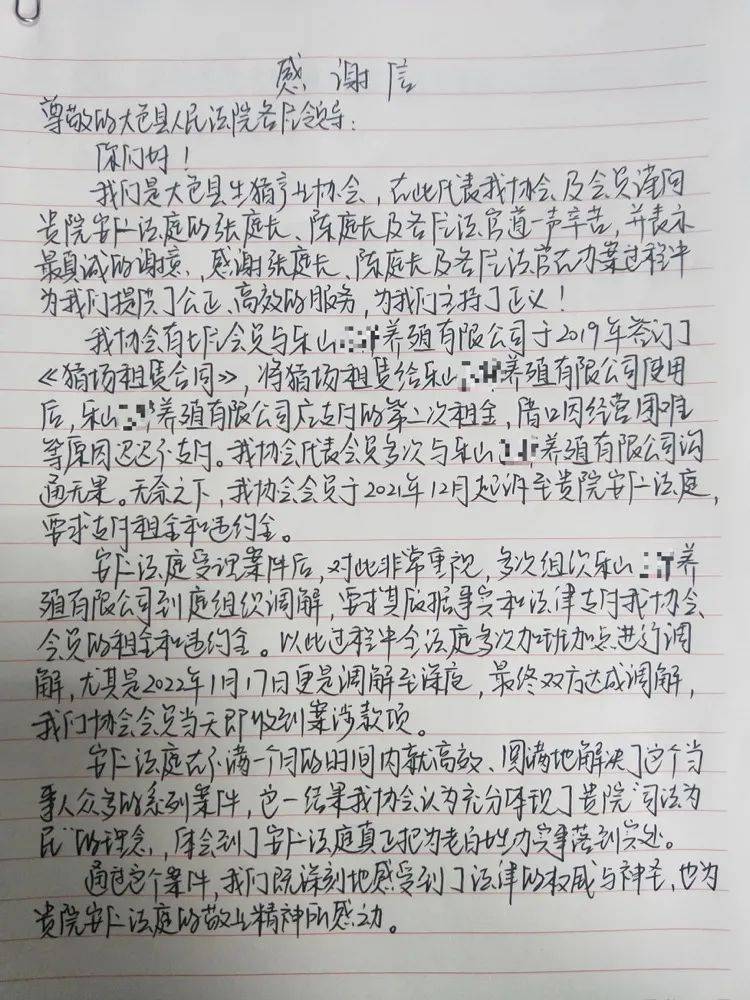 感谢信
尊敬的大邑县人民法院各位领导：
你们好！
我们是大邑县生猪产业协会，在此代表我协会及会员谨向
贵院安仁法庭的张庭长、陈庭长及各位法官道一声辛苦，并表示
最真诚的谢意，感谢张庭长、陈庭长及各位法官在办案过程中
为我们提供了公正、高效的服务，为我们主持了正义！
我协会有七位会员与乐山养殖有限公司于2019年签订了
《猪场租赁合同》，将猪场租赁给乐山养殖有限公司使用
后，乐山养殖有限公司应支付的第二次租金，借口因经营困难
等原因迟迟不支付。我协会代表会员多次与乐山养殖有限公司沟
通无果。无奈之下，我协会会员于2021年12月起诉至贵院安仁法庭，
要求支付租金和违约金。
安仁法庭受理案件后，对此非常重视，多次组织乐山养
殖有限公司到庭组织调解，要求其依据事实和法律支付我协会
会员的租金和违约金。以此过程中全法庭多次加班加点进行调
解，尤其是2022年1月17日更是调解至深夜，最终双方达成调解，
我们协会会员当天即收到案涉款项。
安仁法庭在不满一个月的时间内就高效、圆满地解决了这个当
事人众多的系列案件，这一结果我协会认为充分体现了贵院“司法为
民”的理念，体会到了安仁法庭真正把为老百姓办实事落到实处。
通过这个案件，我们既深刻地感受到了法律的权威与神圣，也为
贵院安仁法庭的敬业精神所感动。